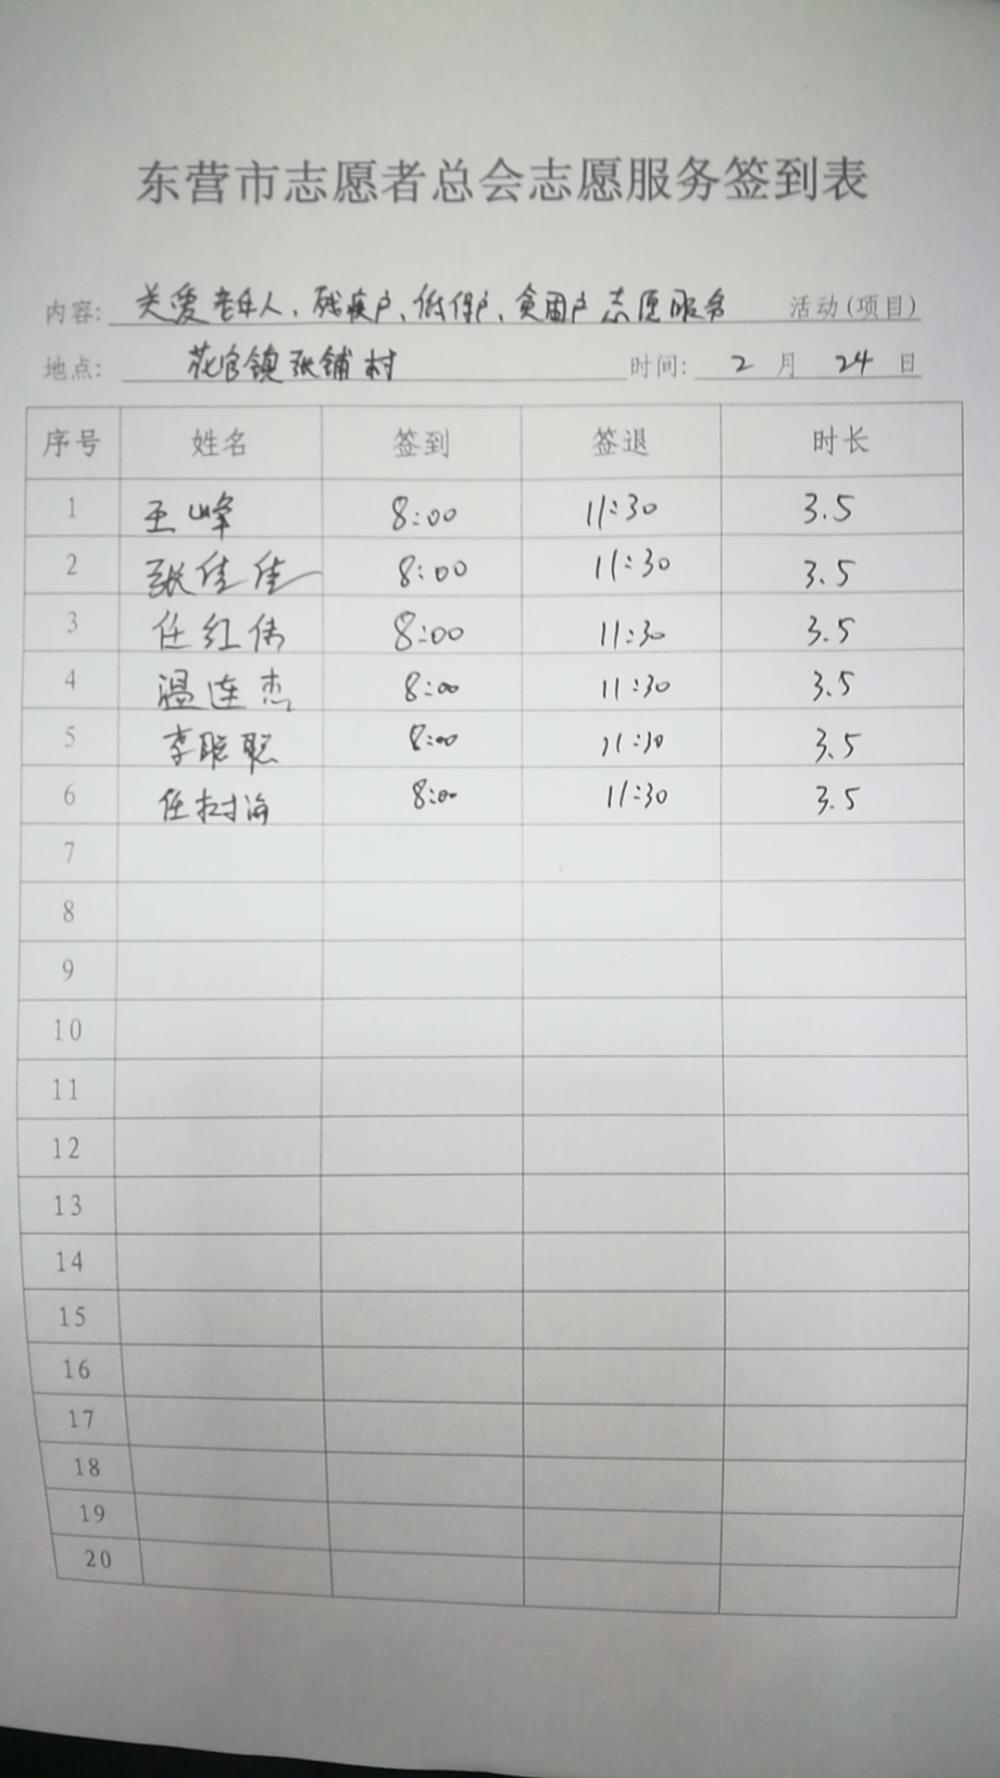 东营市志愿者总会志愿服务签到表
内容: 关爱老年人、残疾户、低保户、贫困户志愿服务 活动(项目)
地点: 花官镇张铺村 时间: 2 月 24 日
序号 姓名 签到 签退 时长
1 王峰 8:00 11:30 3.5
2 张佳佳 8:00 11:30 3.5
3 任红伟 8:00 11:30 3.5
4 温连杰 8:00 11:30 3.5
5 李聪聪 8:00 11:30 3.5
6 任树海 8:00 11:30 3.5
7
8
9
10
11
12
13
14
15
16
17
18
19
20